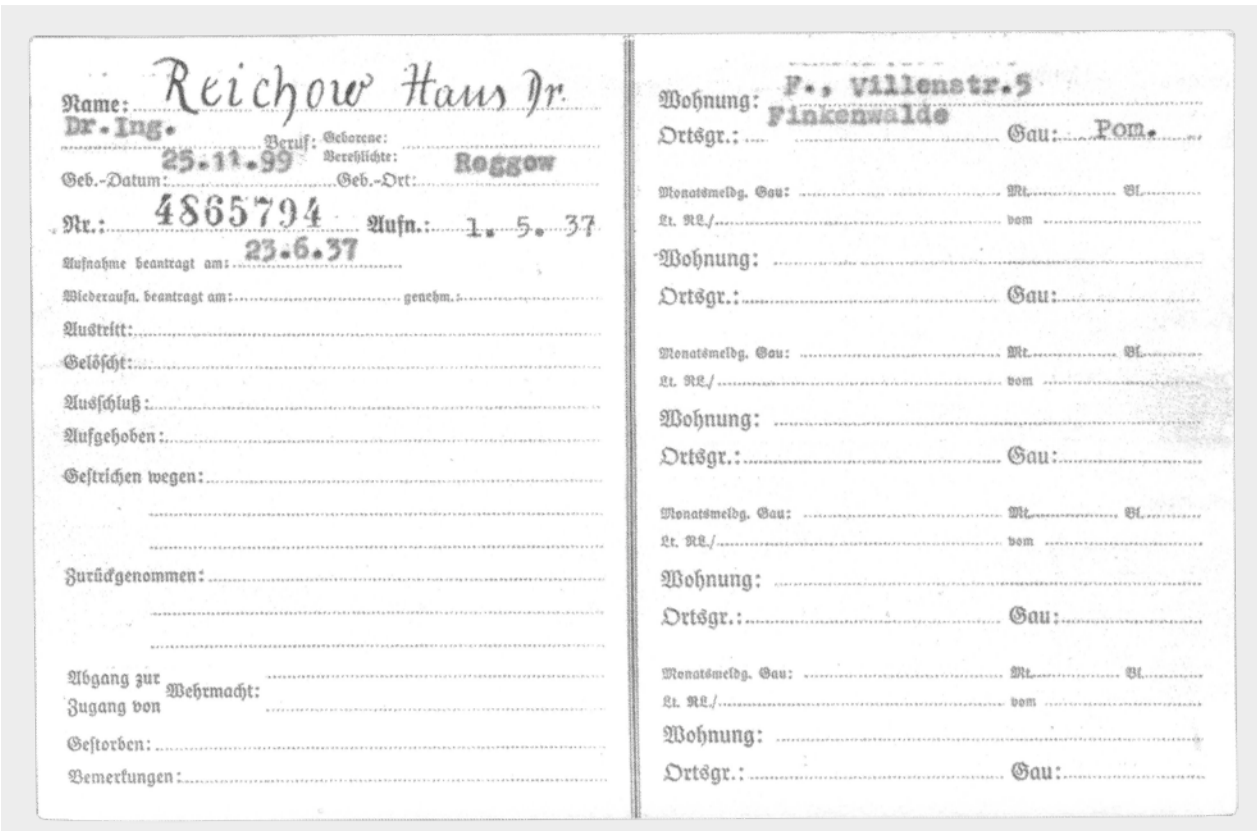 Name: Reichow Hans Dr.
Dr. Ing.
Beruf: Geborene:
Verehlichte:
25.11.99 Roggow
Geb.-Datum: Geb.-Ort:
Nr.: 4865794 Aufn.: 1. 5. 37
Aufnahme beantragt am: 23.6.37
Wiederaufn. beantragt am: genehm.:
Austritt:
Gelöscht:
Ausschluß:
Aufgehoben:
Gestrichen wegen:
Zurückgenommen:
Abgang zur
Wehrmacht:
Zugang von
Gestorben:
Bemerkungen:
Wohnung: F., Villenstr.5
Finkenwalde
Ortsgr.: Gau: Pom.
Monatsmeldg. Gau: Mt. Bl.
Lt. RL./ vom
Wohnung:
Ortsgr.: Gau:
Monatsmeldg. Gau: Mt. Bl.
Lt. RL./ vom
Wohnung:
Ortsgr.: Gau:
Monatsmeldg. Gau: Mt. Bl.
Lt. RL./ vom
Wohnung:
Ortsgr.: Gau:
Monatsmeldg. Gau: Mt. Bl.
Lt. RL./ vom
Wohnung:
Ortsgr.: Gau: